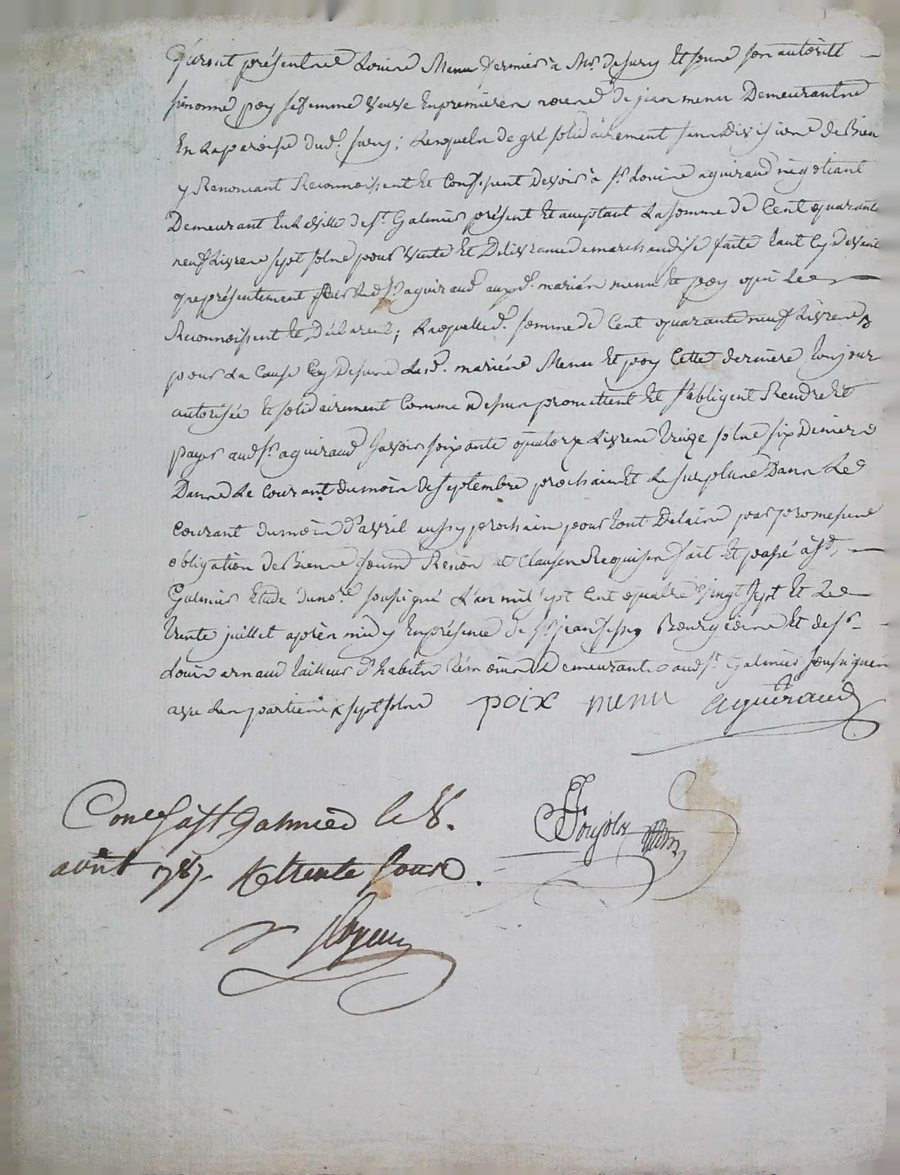 furent présents Louis Menu vernier à Mrs de Sury Et sous son autorité
simonne poy sa femme veuve En premieres noces de jean menu Demeurants
En la paroisse dud. Sury ; Lesquels de gré solidairement sans division de Bien
y Renoncant Reconnoissent Et Confessent devoir à Sr. Louis aguiraud négotiant
Demeurant En la ville de St. Galmier présent Et acceptant La somme de Cent quarante
neuf Livres sept sols pour vente Et Délivrance de marchandise faite tant Cy devant
que présentement par Led. Sr. aguiraud auxd. mariés menu Et poy qui Le
Reconnoissent Et Déclarent ; Laquelle d. somme de Cent quarante neuf Livres
pour La Cause Cy Dessus Lesd. mariés Menu Et poy Cette derniere toujours
autorisée Et solidairement Comme dessus promettent Et s'obligent Rendre Et
payer aud. Sr. aguiraud savoir soixante quatorze Livres treize sols six Deniers
Dans Le Courant du mois de septembre prochain Et Le surplus Dans Le
Courant du mois d'avril aussy prochain pour tout Delais par promesses
obligation de Biens soumis Renon. et Clauses Requises fait Et passé à St.
Galmier Etude du no.re soussigné L'an mil sept Cent quatre vingt sept Et Le
trente juillet après midy En présence de Sr. jean Bourgeois Et de Sr.
Louis arnaud tailleur d'habits témoins Demeurants aud. St. Galmier soussignés
avec Les parties x sept sols
poix menu aguiraud
Con.lé à St. Galmier le 8.
août 1787. R trente sous.